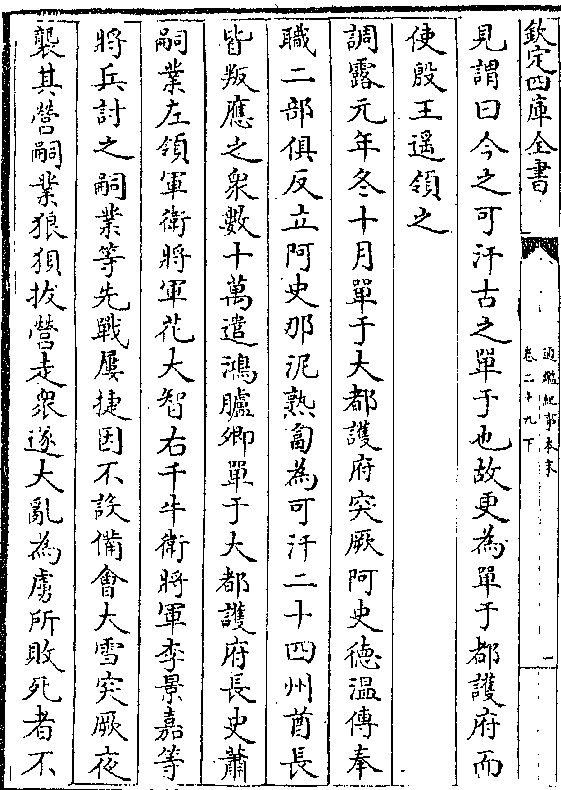 欽定四庫全書
通鑑紀事本末
卷二十九下
一
見謂曰今之可汗古之單于也故更為單于都護府而
使殷王遥領之
調露元年冬十月單于大都護府突厥阿史德溫傳奉
職二部俱反立阿史那泥熟匐為可汗二十四州酋長
皆叛應之衆數十萬遣鴻臚卿單于大都護府長史蕭
嗣業左領軍衛將軍花大智右千牛衛將軍李景嘉等
將兵討之嗣業等先戰屢捷因不設備會大雪突厥夜
襲其營嗣業狼狽拔營走衆遂大亂為虜所敗死者不